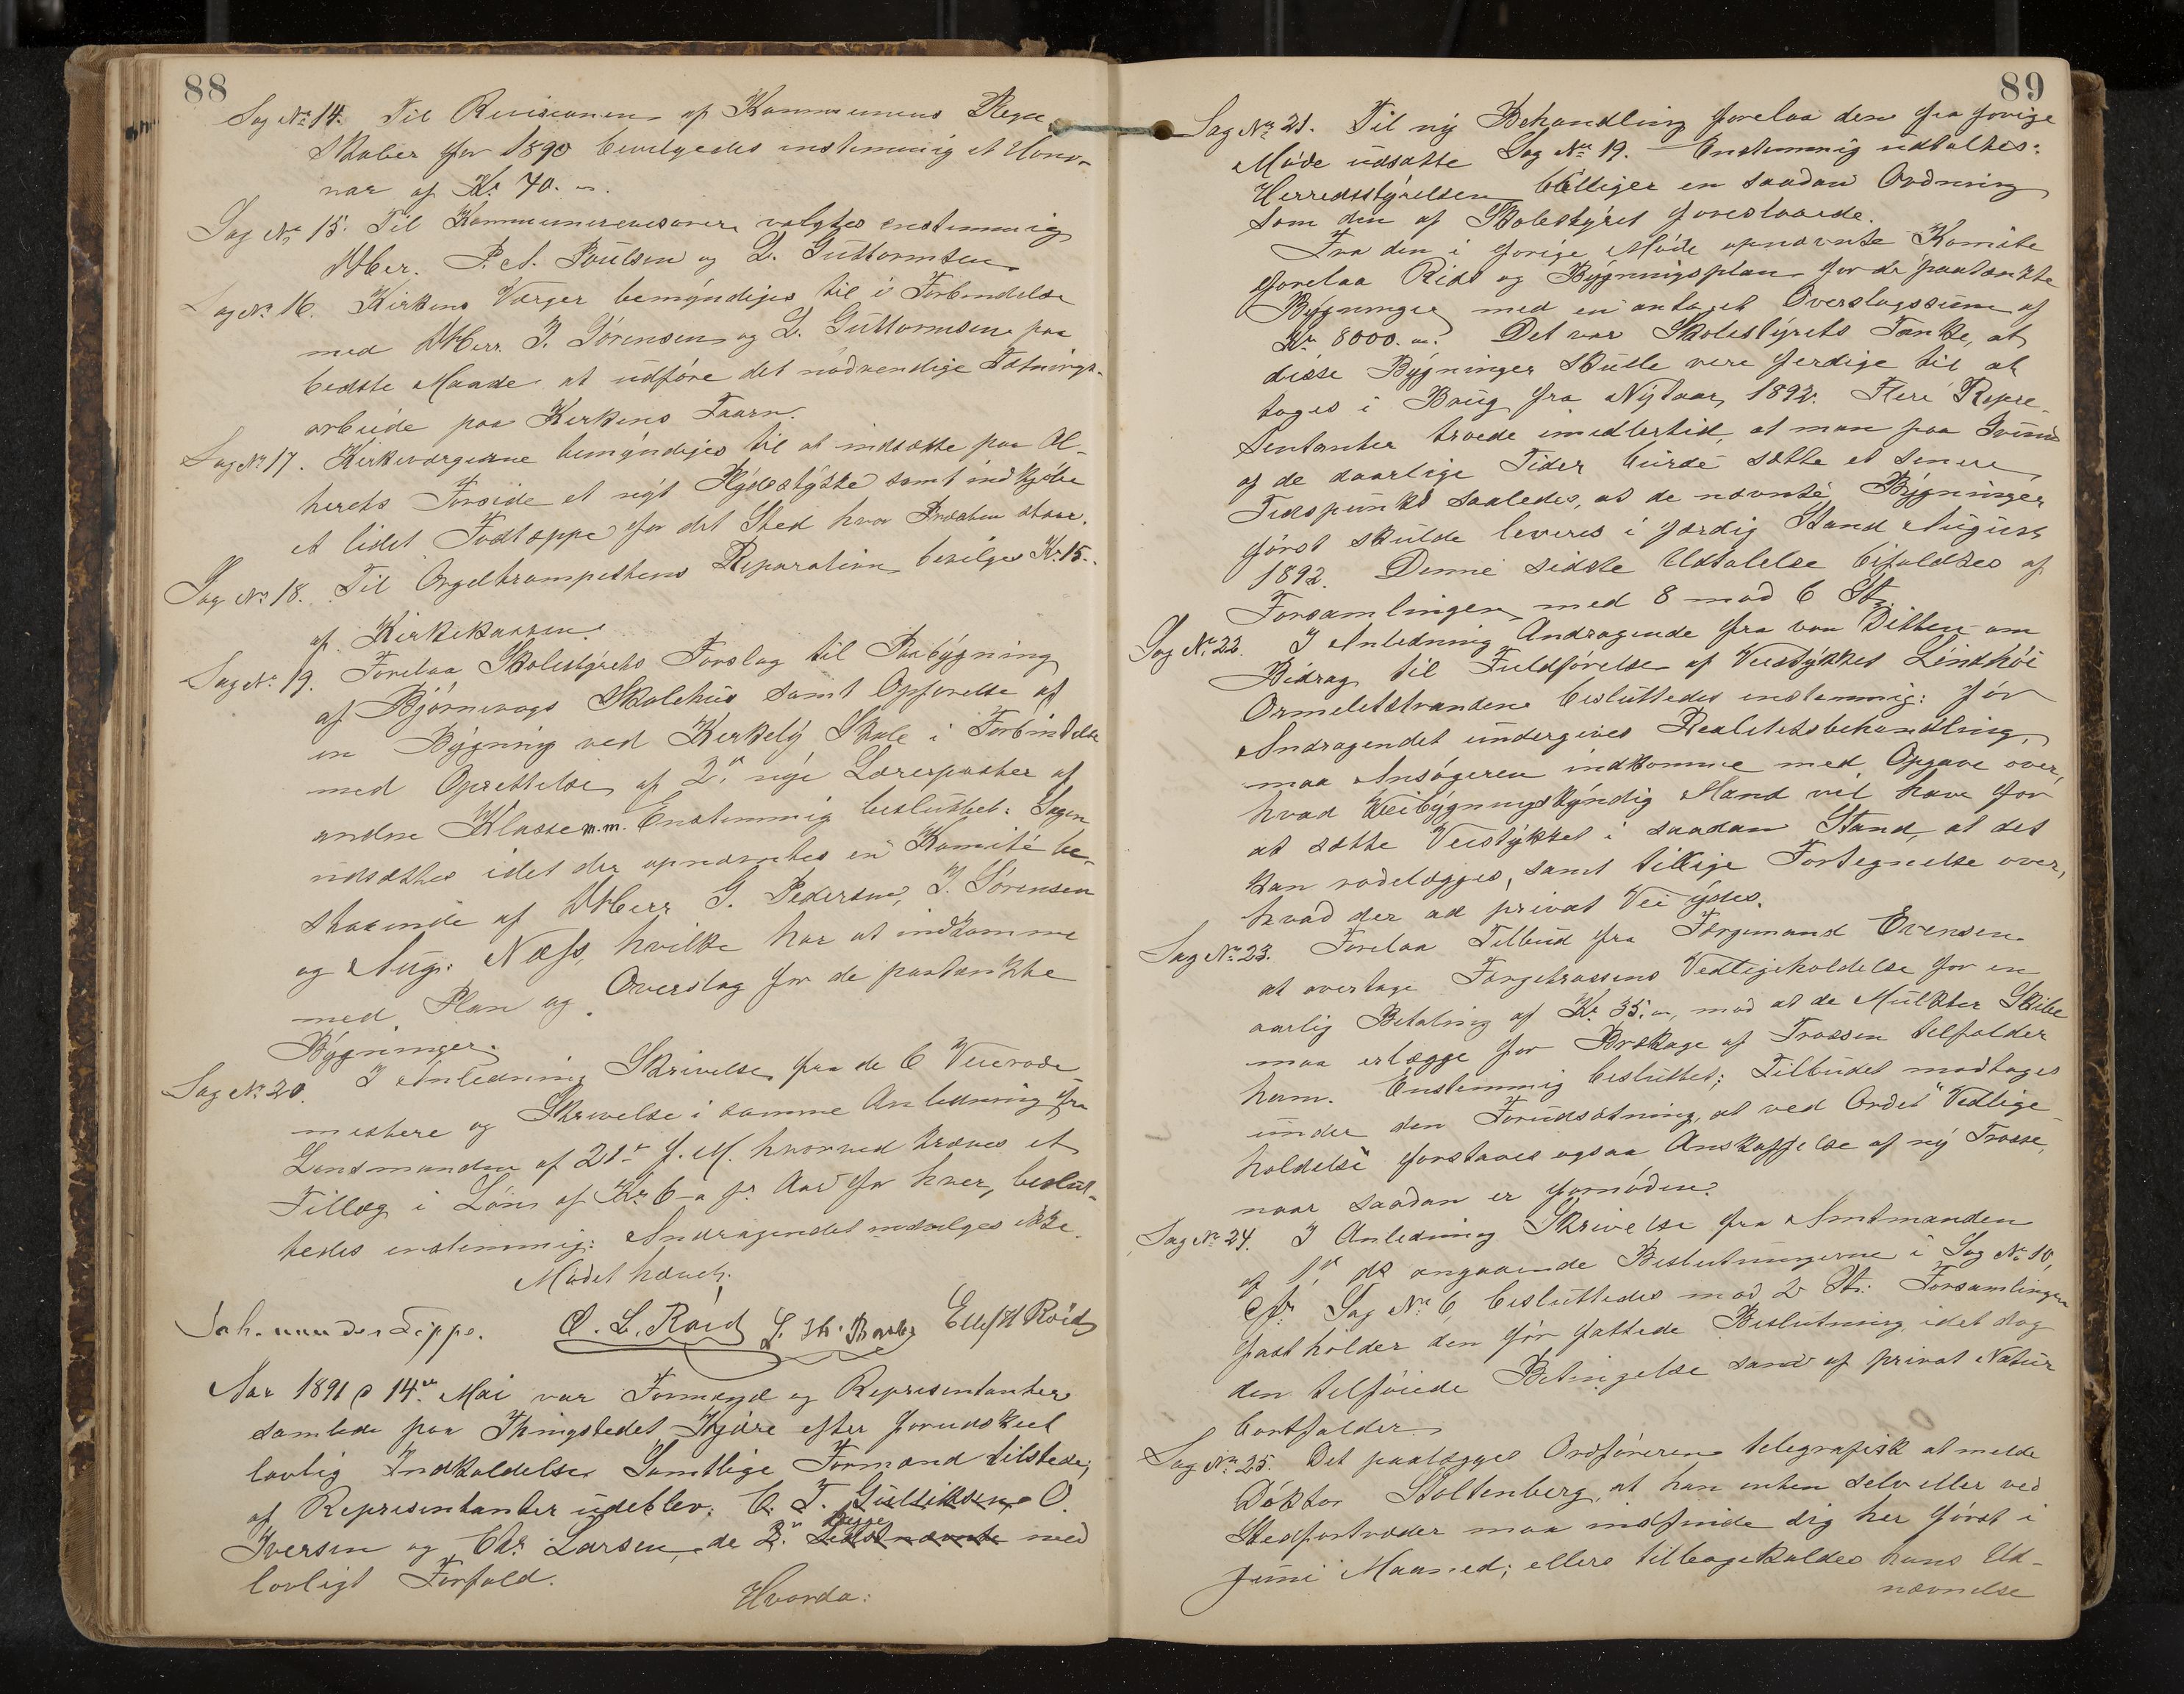 88
Sag No 14. Til Revisionen af Kommunens Regn-
skaber for 1890 bevilgedes enstemmig et Hono-
rar af Kr. 70.
Sag No 15. Til Kommunerevisorer valgtes enstemmig
DHer. P. A. Poulsen og L. Guttormsen
Sag No 16. Kirkens Værger bemyndiges til i Forbindelse
med DHerr. J. Sørensen og L. Guttormsen paa
bedste Maade at udføre det nødvendige Tætnings-
arbeide paa Kirkens Taarn.
Sag No 17. Kirkeværgerne bemyndiges til at indsætte paa Al-
terets Forside et nyt stykke samt indkjøbe
et lidet Fodtæppe for det Sted hvor Præsten staar.
Sag No 18. Til Orgeltrampettens Reparation bevilges Kr. 15.
af Kirkekassen.
Sag No 19. Forelaa Skolestyrets Forslag til Paabygning
af Bjørnevags Skolehus samt Opførelse af
en Bygning ved Kirkely Skole i Forbindelse
med Oprettelse af 2de nye Lærerposter af
anden Klasse m.m. Enstemmig besluttet: Sagen
udsættes idet der opnævntes en Komité be-
staaende af DHerr G. Pedersen, J. Sørensen
og Aug: Næss, hvilke har at indkomme
med Plan og Overslag for de paatænkte
Bygninger.
Sag No 20. I Anledning Skrivelse fra de 6 Veierode
mestere og Skrivelse i samme Anledning fra
Lensmanden af 21de f. M. hvorved kræves et
Tillæg i Løn af Kr 6 - a pr. Aar for hver, beslut-
tedes enstemmig: Andragendet indvilges ikke.
Mødet hævet.
Joh. von der Lippe. O. L. Røed Ellef H Røed
Aar 1891 d 14de Mai var Formænd og Representanter
samlede paa Thingstedet Kjære efter forudskeet
lovlig Indkaldelse Samtlige Formænd tilstede;
af Representanter udeblev: C. T. Gulliksen, O.
Iversen og Chr. Larsen, de 2de begge sidstnævnte med
lovligt Forfald.
Hvorda:
89
Sag No 21. Til ny Behandling forelaa den fra forige
Møde udsatte Sag No 19. - Enstemmig udtaltes:
Herredsstyrelsen billiger en saadan Ordning
som den af Skolestyret foreslaaede.
Fra den i forige Møde opnævnte Komite
forelaa Rids og Bygningsplan for de paatænkte
Bygninger med en antaget Overslagssum af
Kr 8000. Det var Skolestyrets Tanke, at
disse Bygninger skulle være færdige til at
tages i Brug fra Nytaar 1892. Flere Repre-
sentanter troede imidlertid, at man paa Grund
af de daarlige Tider burde sætte et senere
Tidspunkt saaledes, at de nævnte Bygninger
først skulde leveres i færdig Stand August
1892. Denne sidste Udtalelse bifaldtes af
Forsamlingen med 8 mod 6 St.
Sag No 22. I Anledning Andragende fra von Ditten om
Bidrag til Fuldførelse af Veistykket Lindhøi
Ormeletstranden besluttedes enstemmig: før
Andragendet undergives Realitetsbehandling,
maa Ansøgeren indkomme med Opgave over,
hvad Veibygningskyndig Mand vil have for
at sætte Veistykket i saadan Stand, at det
kan rodelægges, samt tillige Fortegnelse over,
hvad der ad privat Vei ydes.
Sag No 23. Forelaa Tilbud fra Færgemand Evensen
at overtage Færgetrossens Vedligeholdelse for en
aarlig Betaling af Kr. 35., mod at de Mulkter Skibe
maa erlægge for Brækage af Trossen tilfalder
ham. Enstemmig besluttet: Tilbudet modtages
under den Forudsætning, at ved Ordet "Vedlige-
holdelse" forstaaes ogsaa Anskaffelse af ny Trosse,
naar saadan er fornøden.
Sag No 24. I Anledning Skrivelse fra Amtmanden
af 1ste ds angaaende Beslutningerne i Sag No 10,
cfr. Sag No 6, besluttedes mod 2 St: Forsamlingen
fastholder den før fattede Beslutning idet dog
den tilføiede Betingelse som af privat Natur
bortfalder
Sag No 25. Det paalægges Ordføreren telegrafisk at melde
Doktor Stoltenberg, at han enten selv eller ved
Stedfortræder maa indfinde sig her først i
Juni Maaned; ellers tilbagekaldes hans Ud-
nævnelse